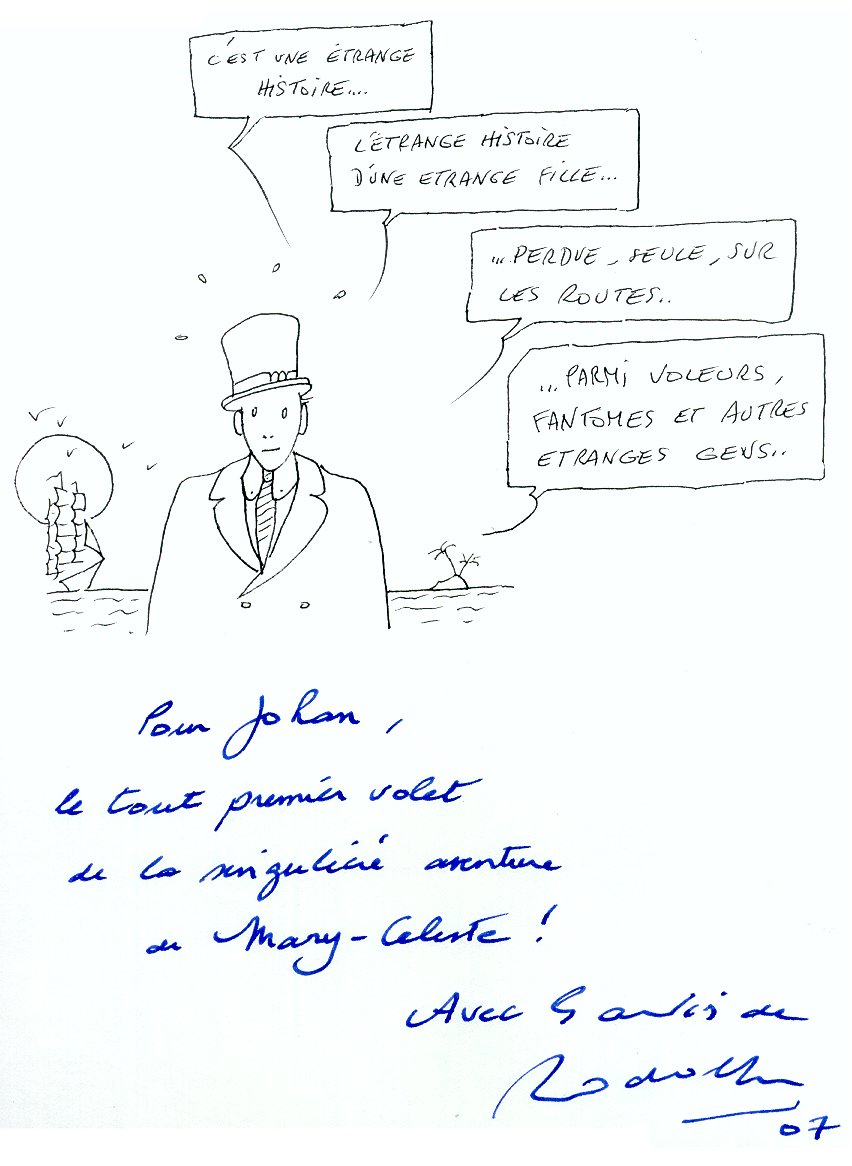 C'EST UNE ÉTRANGE
HISTOIRE....
L'ÉTRANGE HISTOIRE
D'UNE ETRANGE FILLE...
...PERDUE, SEULE, SUR
LES ROUTES..
...PARMI VOLEURS,
FANTOMES ET AUTRES
ETRANGES GENS..
Pour Johan,
le tout premier volet
de la singulière aventure
de Mary-Celeste !
Avec de
Rodolphe
07